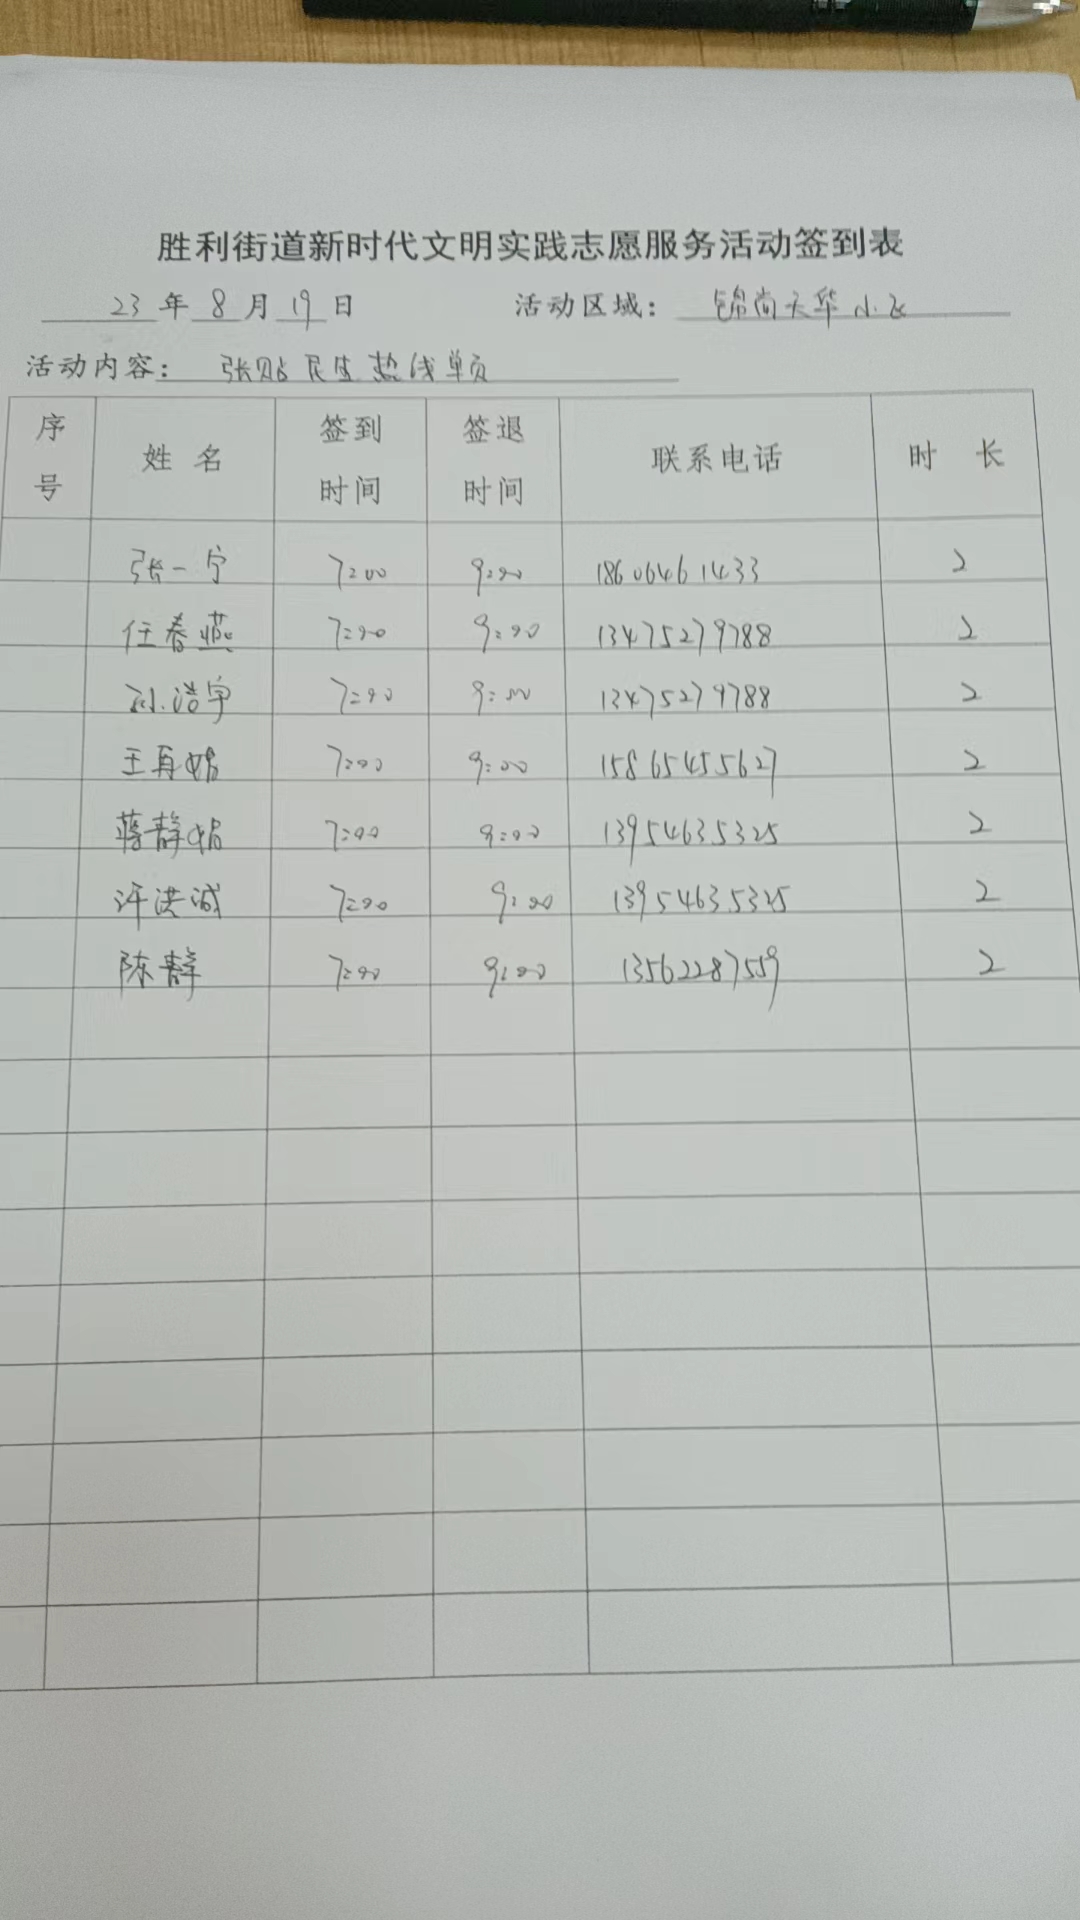 胜利街道新时代文明实践志愿服务活动签到表
23年8月19日 活动区域：锦尚天华小区
活动内容：张贴民生热线单页
序号 姓名 签到时间 签退时间 联系电话 时长
张一宁 7:00 9:00 18606461433 2
任春燕 7:00 9:00 13475279788 2
孙浩宇 7:00 9:00 13475279788 2
王再娟 7:00 9:00 15865455627 2
蒋静娟 7:00 9:00 13954635325 2
许洪诚 7:00 9:00 13954635325 2
陈静 7:00 9:00 13562287559 2